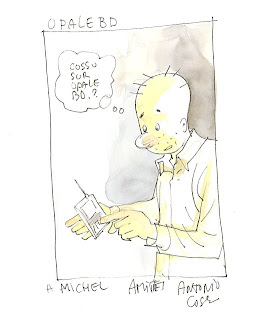 OPALE BD
COSSU
SUR
OPALE
BD.?
A MICHEL
AMITIÉ
ANTONIO
COSSU